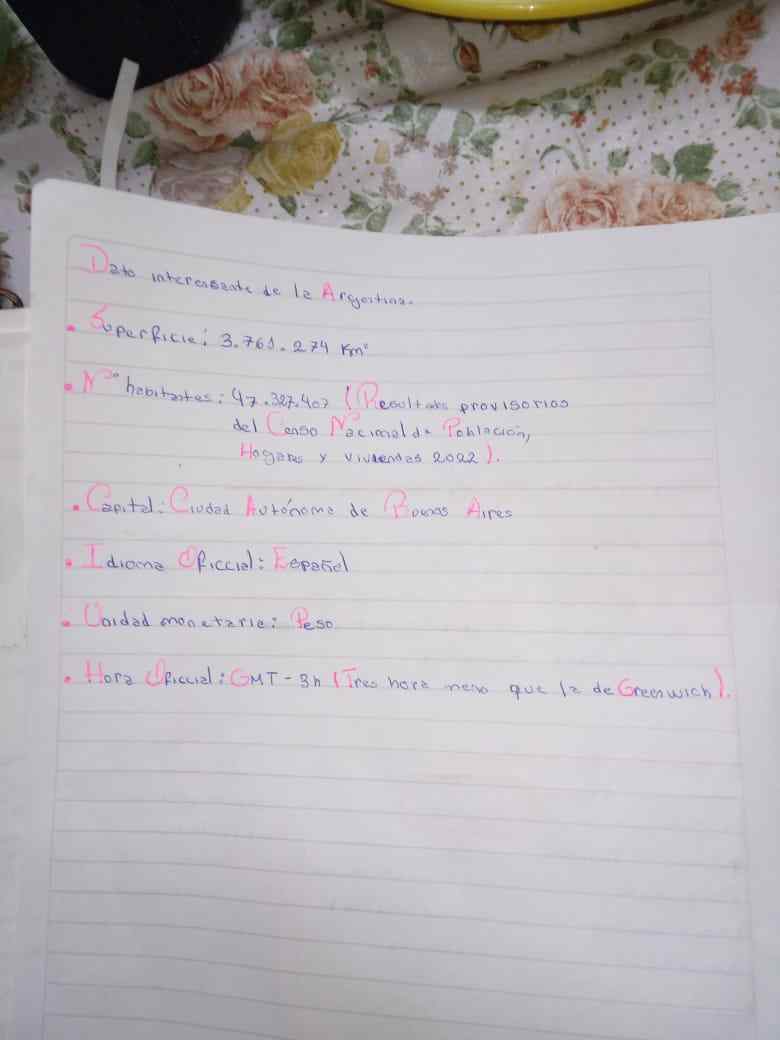 Dato interesante de la Argentina.
• Superficie: 3.761.274 Km²
• N° habitantes: 47.327.407 (Resultats provisorios
del Censo Nacional de Población,
Hogares y viviendas 2022).
• Capital: Ciudad Autónoma de Buenos Aires
• Idioma Oficcial: Español
• Unidad monetaria: Peso
• Hora Oficcial: GMT - 3h (Tres hora meno que la de Greenwich).